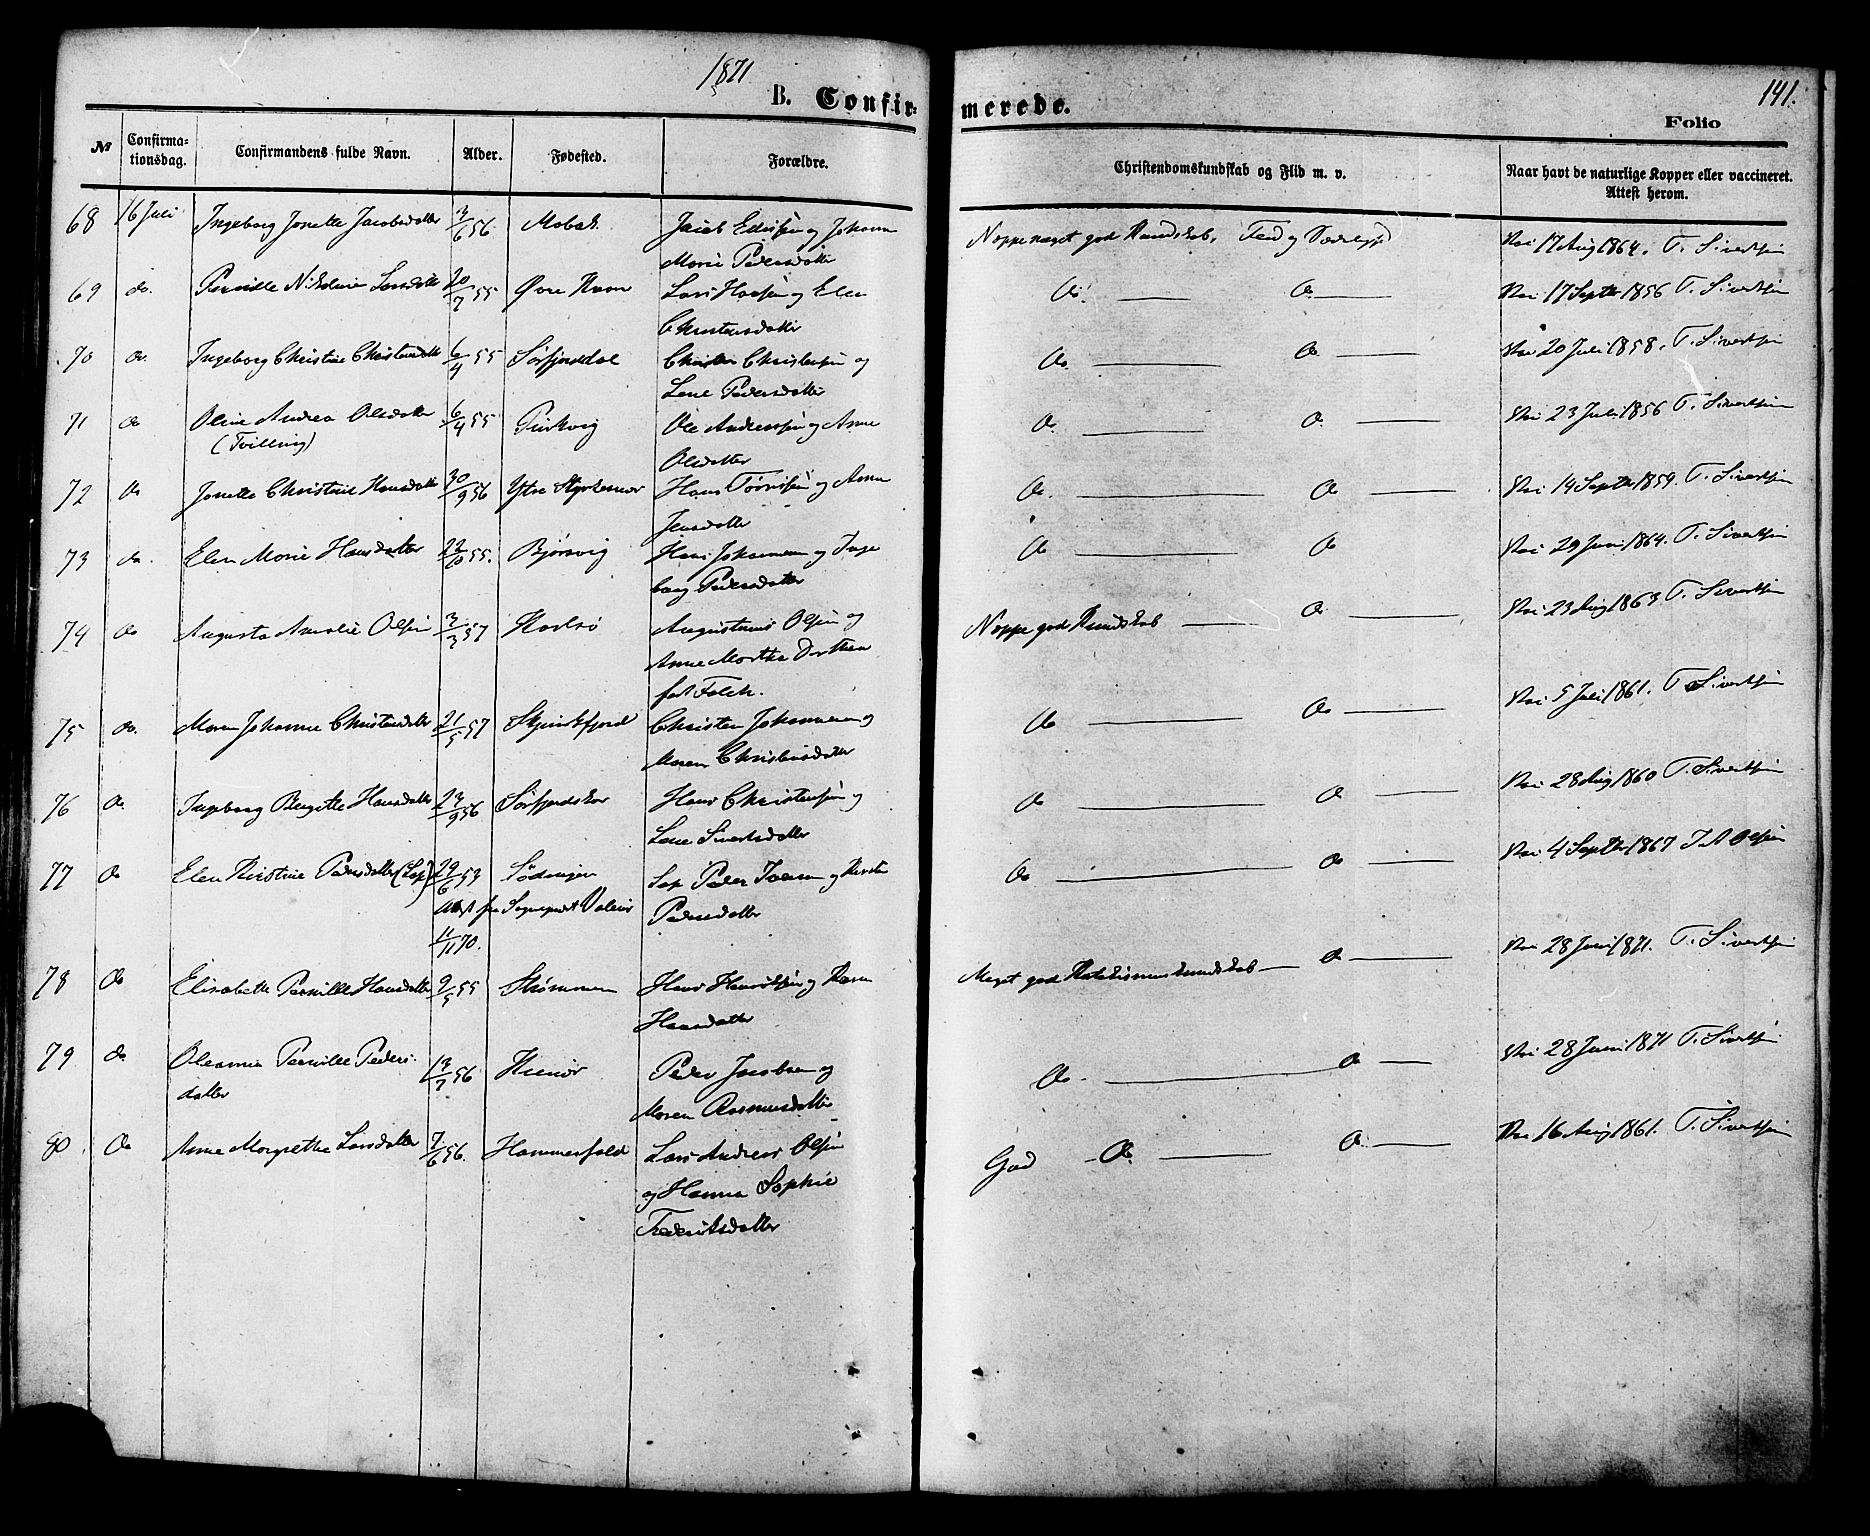 1871
141.
B. Confir-
merede.
Folio
№
Confirma-
tionsdag.
Confirmandens fulde Navn.
Alder.
Fødested.
Forældre.
Christendomskundskab og Flid m. v.
Naar havt de naturlige Kopper eller vaccineret.
Attest herom.
68 16 Juli Ingeborg Jonette Jacobsdatter 3/6 56. Jacob og Johanna
Marie Pedersdatter
Noppe meget god Kundskab. Flid og Vac 17 Aug 1864. T. Sivertsen
69 do. Pernille Larsdatter 20/7 55 Øvre Lars Hansen og Elen
Christensdatter
Do. Do. Vac 17 Septbr 1856 T. Sivertsen
70 Do. Ingeborg Christine Christensdatter 6/4 55 Sørfjorddal Christen Christensen og
Lene Pedersdatter
Do. Do Vac 20 Juli 1858. T. Sivertsen
71 Do Oline Andrea Olsdatter 6/4 55 Ole Andersen og Anne
(Tvilling)
Olsdatter
Do. Do. Vac 23 Juli 1856 T. Sivertsen
72 Do Jonette Christine Hansdatter 30/9 56 Ytre Hans og Anne
Jensdatter
Do. Do Vac 14 Septbr 1859. T. Sivertsen
73 do. Elen Marie Hansdatter 22/10 55. Bjørsvig Hans Johannesen og Inge
borg Pedersdatter
Do Do Vac 29 Juni 1864. T. Sivertsen
74 Do Augusta Amalie Olsen 3/3 57 Karlsø Augustinus Olsen og
Anne Martha Dorthea
fød Falch.
Noppe god Kundskab Do. Vac 23 Aug 1863 T. Sivertsen
75 do. Maren Johanne Christensdatter 21/5 57 Skjurdsfjord Christen Johannesen og
Maren Christensdatter
Do Do Vac 5 Juli 1861. T. Sivertsen
76 Do. Ingeborg Bergitte Hansdatter 23/9 56 Sørfjordskar Hans Christensen og
Lene Sivertsdatter
Do Do Vac 28 Aug 1860 T. Sivertsen
77 Do Elen Kirstine Pedersdatter (Lap) 29/6 53 Lødingen Lap Peder Iversen og Kirsten
Attest fra Sognepræst
Pedersdatter
11/11 70.
Do Do Vac 4 Septbr 1867 Olsen
78 Do Elisabeth Pernille Hansdatter 2/5 55 Strømmen Hans Henriksen og Karen
Hansdatter
Meget god Katekismuskundskab Do Vac 28 Juni 1871. T. Sivertsen
79 do Oleanna Pernille Peders-
datter
13/7 56 Helnør Peder Jacobsen og
Maren Rasmusdatter
Do. Do Vac 28 Juni 1871 T. Sivertsen
80 Do Anne Margrethe Larsdatter 7/6 56. Hammerfeld Lars Andreas Olsen
og Hanna Sophie
Frederiksdatter
God Do. Do. Vac 16 Aug 1861. T. Sivertsen